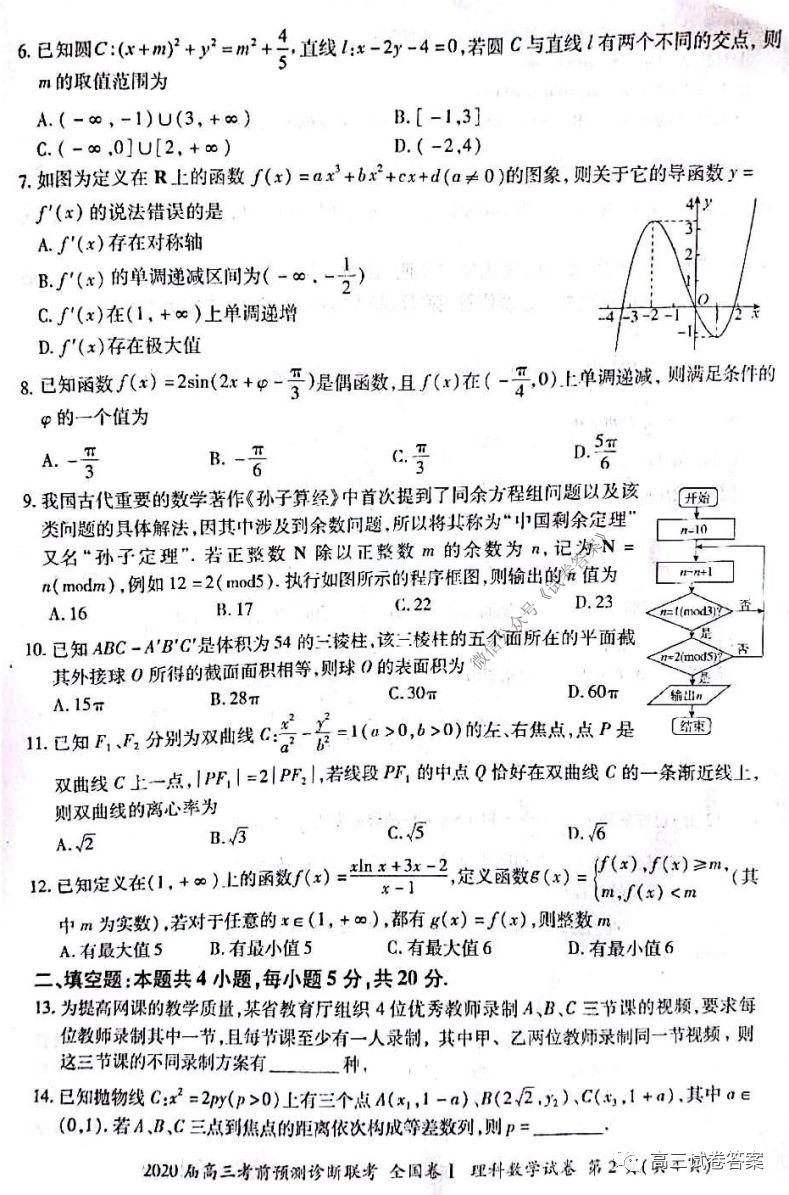 6. 已知圆C:(x+m)²+y²=m²+4/5,直线l:x-2y-4=0,若圆C与直线l有两个不同的交点,则
m的取值范围为
A.(-∞,-1)∪(3,+∞) B.[-1,3]
C.(-∞,0]∪[2,+∞) D.(-2,4)
7. 如图为定义在R上的函数f(x)=ax³+bx²+cx+d(a≠0)的图象,则关于它的导函数y=
f′(x)的说法错误的是
A.f′(x)存在对称轴
B.f′(x)的单调递减区间为(-∞,-1/2)
C.f′(x)在(1,+∞)上单调递增
D.f′(x)存在极大值
4 y
3
2
1
O
-4 -3 -2 -1 1 2 x
-1
8. 已知函数f(x)=2sin(2x+φ-π/3)是偶函数,且f(x)在(-π/4,0)上单调递减,则满足条件的
φ的一个值为
A.-π/3 B.-π/6 C.π/3 D.5π/6
9. 我国古代重要的数学著作《孙子算经》中首次提到了同余方程组问题以及该
类问题的具体解法,因其中涉及到余数问题,所以将其称为“中国剩余定理”
又名“孙子定理”.若正整数N除以正整数m的余数为n,记为N=
n(modm),例如12=2(mod5).执行如图所示的程序框图,则输出的n值为
A.16 B.17 C.22 D.23
开始
n=10
n=n+1
n=1(mod3)? 否
是
n=2(mod5)? 否
是
输出n
结束
微信公众号《试卷答案》
10. 已知ABC-A′B′C′是体积为54的三棱柱,该三棱柱的五个面所在的平面截
其外接球O所得的截面面积相等,则球O的表面积为
A.15π B.28π C.30π D.60π
11. 已知F₁、F₂分别为双曲线C:x²/a²-y²/b²=1(a>0,b>0)的左、右焦点,点P是
双曲线C上一点,|PF₁|=2|PF₂|,若线段PF₁的中点Q恰好在双曲线C的一条渐近线上,
则双曲线的离心率为
A.√2 B.√3 C.√5 D.√6
12. 已知定义在(1,+∞)上的函数f(x)=(xln x+3x-2)/(x-1),定义函数g(x)={f(x),f(x)≥m, m,f(x)<m (其
中m为实数),若对于任意的x∈(1,+∞),都有g(x)=f(x),则整数m
A.有最大值5 B.有最小值5 C.有最大值6 D.有最小值6
二、填空题:本题共4小题,每小题5分,共20分.
13. 为提高网课的教学质量,某省教育厅组织4位优秀教师录制A、B、C三节课的视频,要求每
位教师录制其中一节,且每节课至少有一人录制,其中甲、乙两位教师录制同一节视频,则
这三节课的不同录制方案有________种,
14. 已知抛物线C:x²=2py(p>0)上有三个点A(x₁,1-a)、B(2√2,y₂)、C(x₃,1+a),其中a∈
(0,1).若A、B、C三点到焦点的距离依次构成等差数列,则p=________.
2020届高三考前预测诊断联考 全国卷Ⅰ 理科数学试卷 第2页(共4页)
高三试卷答案